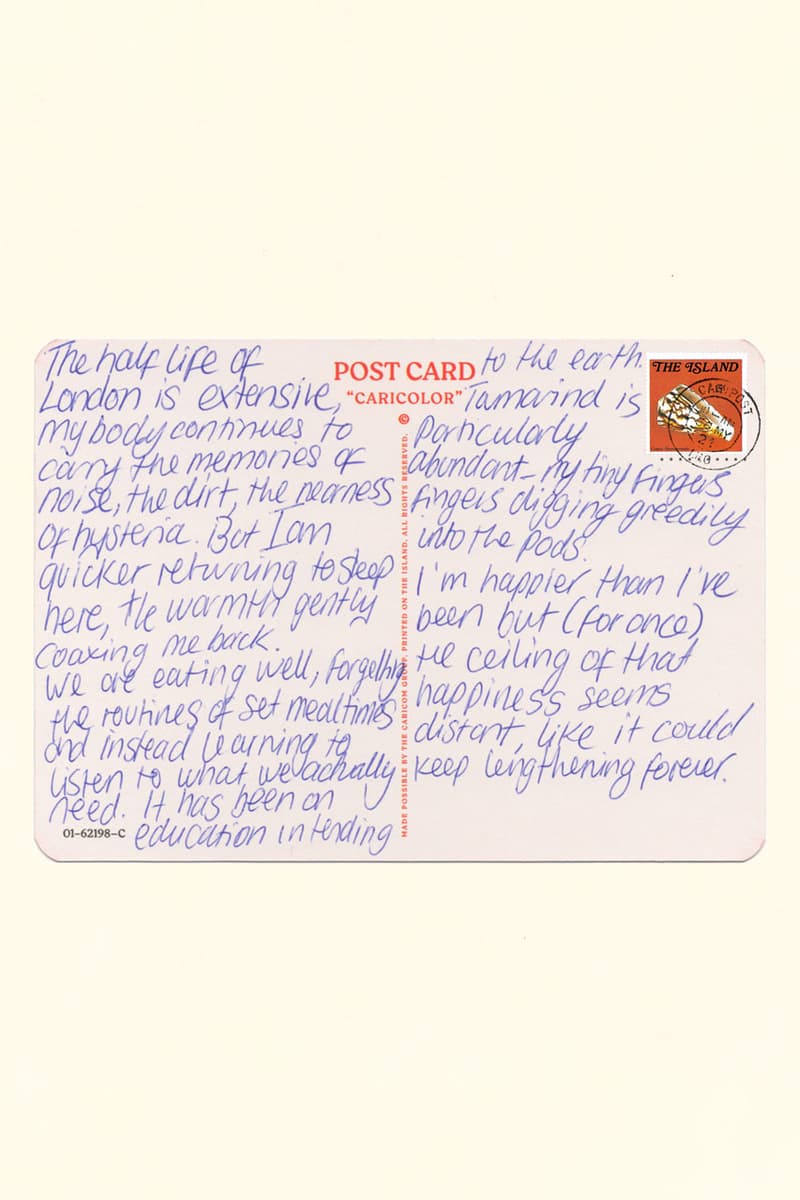 The half life of
London is extensive,
my body continues to
carry the memories of
noise, the dirt, the nearness
of hysteria. But I am
quicker returning to sleep
here, the warmth gently
coaxing me back.
We are eating well, forgetting
the routines of set mealtimes
and instead learning to
listen to what we actually
need. It has been an
education in tending
01-62198-C
POST CARD
"CARICOLOR"
©
MADE POSSIBLE BY THE CARICOM GROUP. PRINTED ON THE ISLAND. ALL RIGHTS RESERVED.
to the earth.
Tamarind is
particularly
abundant - my tiny fingers
fingers digging greedily
into the pods.
I'm happier than I've
been but (for once)
the ceiling of that
happiness seems
distant, like it could
keep lengthening forever.
THE ISLAND